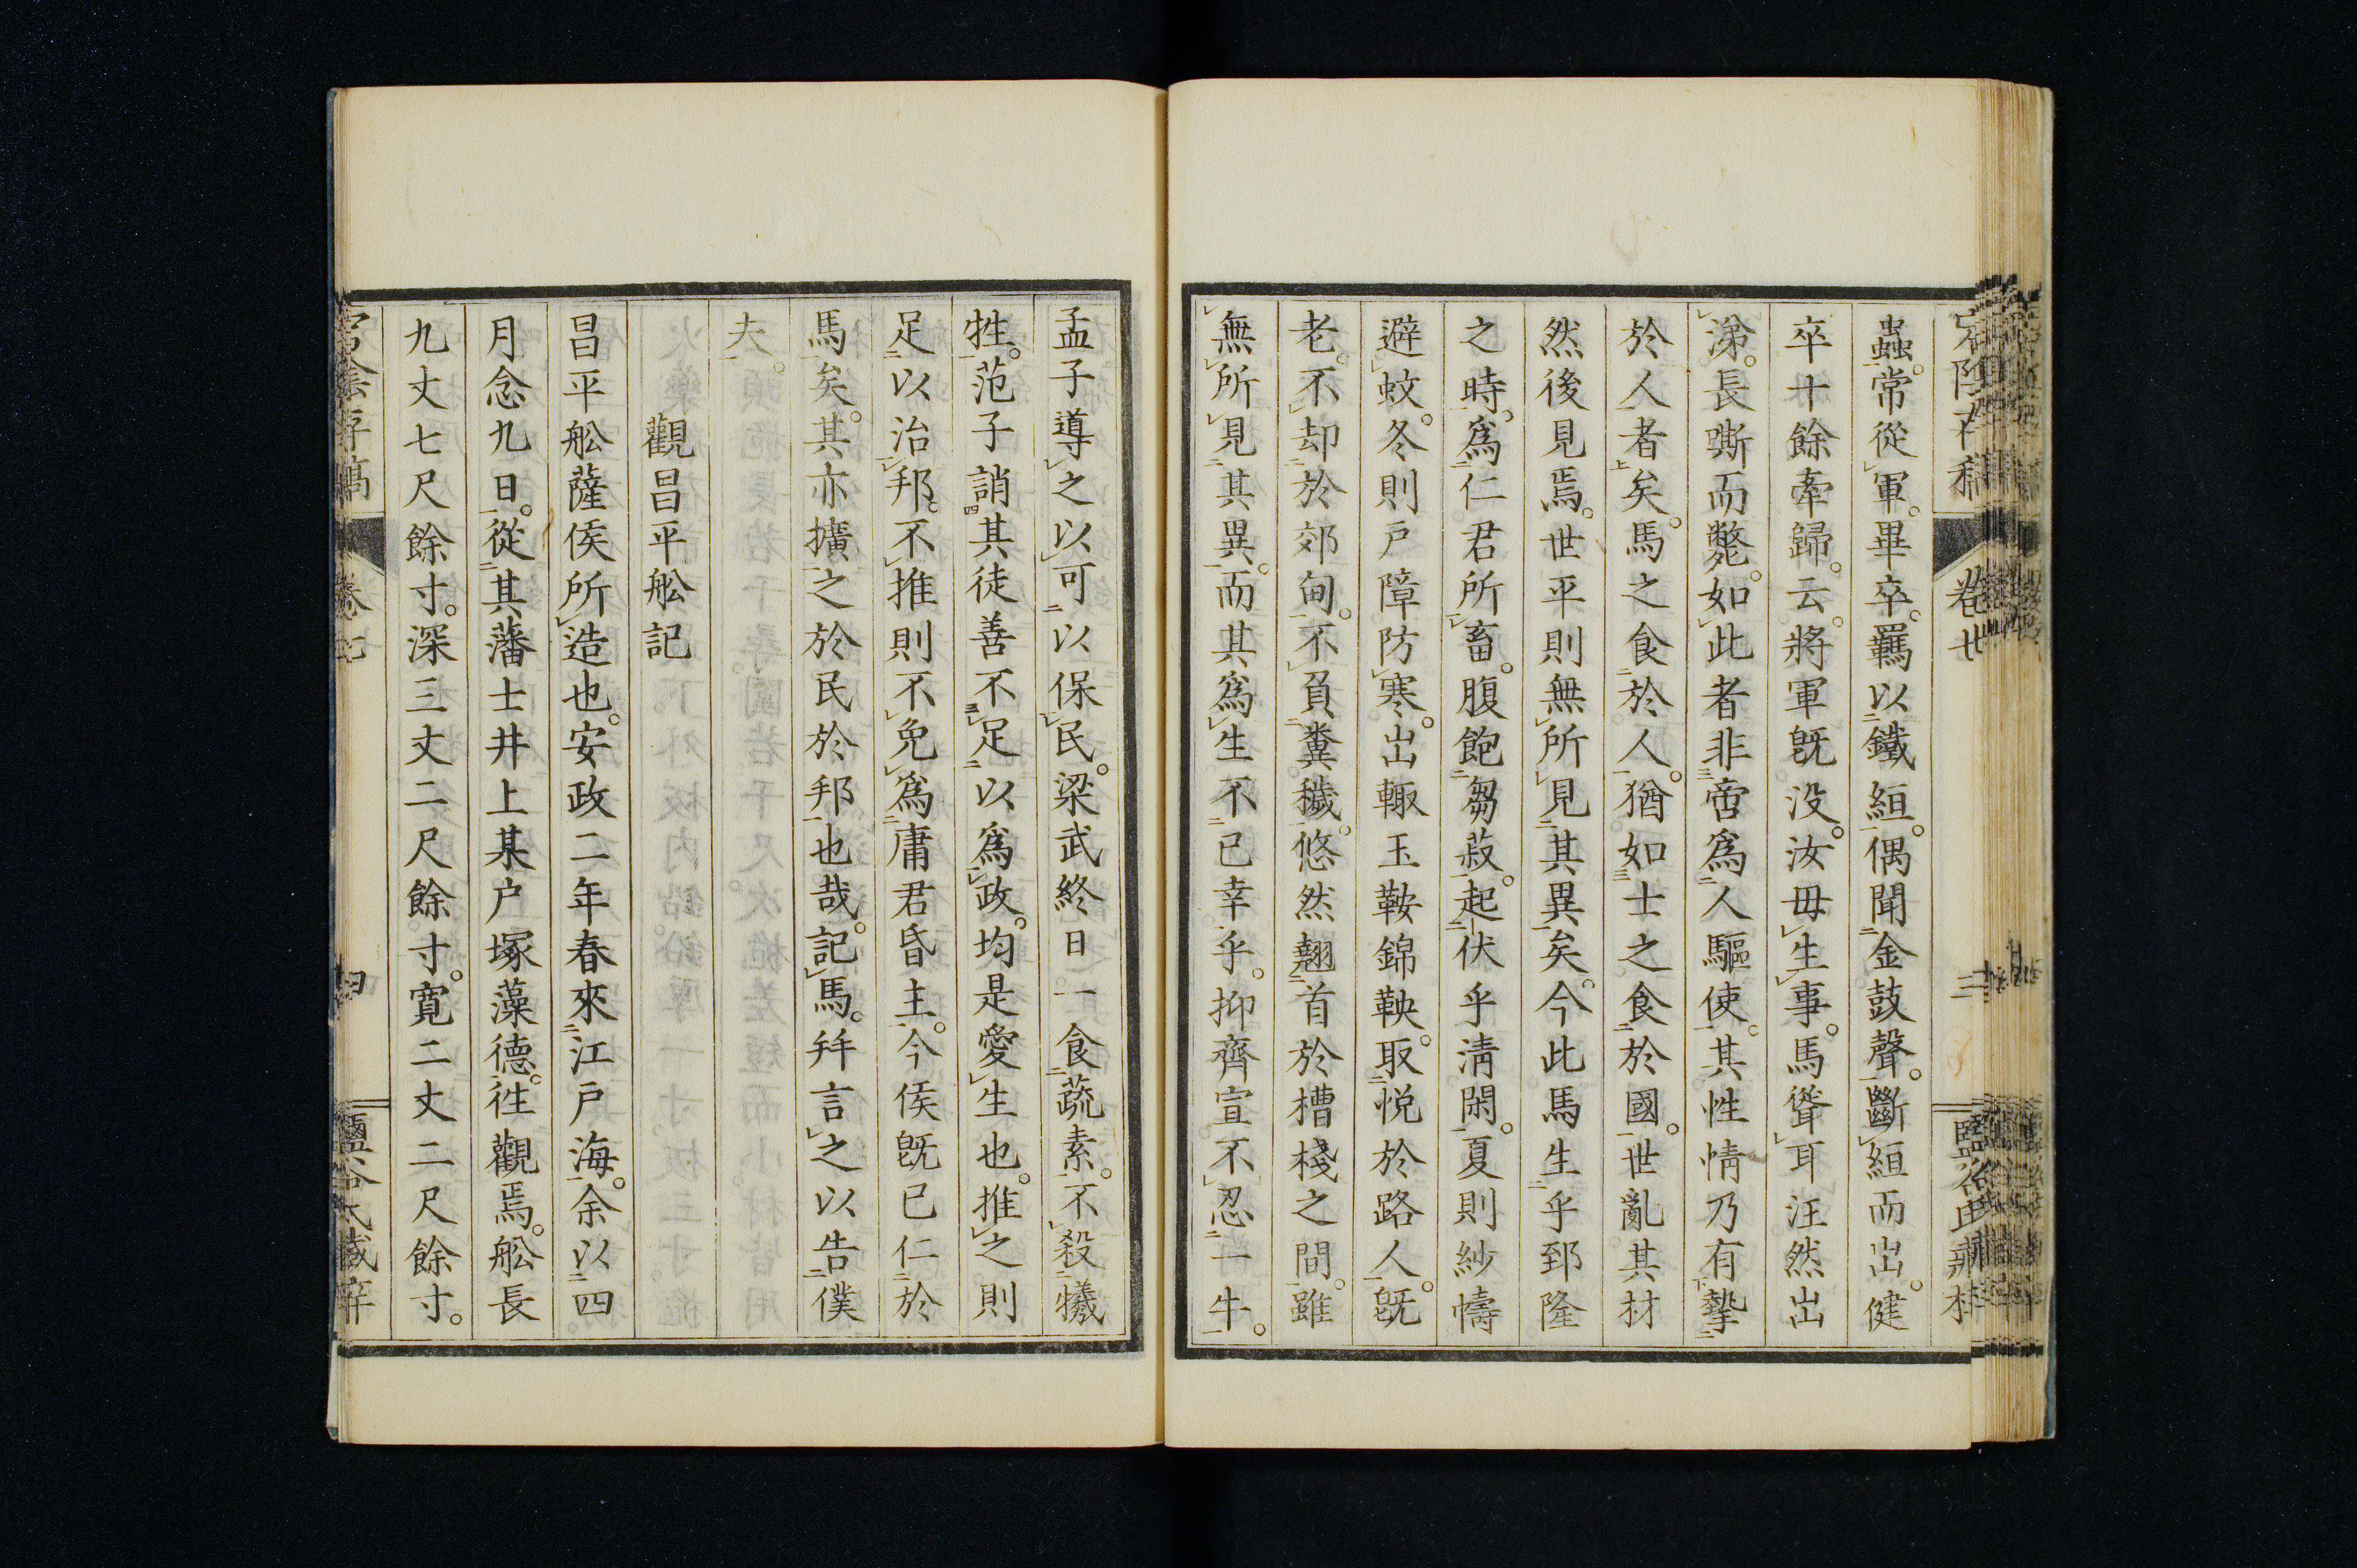 蟲。常從軍。畢卒。羈以鐵絙。偶聞金鼓聲。斷絙而出。健
卒十餘牽歸。云。將軍旣没。汝毋生事。馬聳耳汪然出
涕。長嘶而斃。如此者非啻爲人驅使。其性情乃有摯
於人者矣。馬之食於人。猶如士之食於國。世亂其材
然後見焉。世平則無所見其異矣。今此馬生乎郅隆
之時。爲仁君所畜。腹飽芻菽。起伏乎淸閑。夏則紗幬
避蚊。冬則戸障防寒。出輙玉鞍錦鞅。取悦於路人。旣
老。不却於郊甸。不負糞穢。悠然翹首於槽棧之間。雖
無所見其異。而其爲生不已幸乎。抑齊宣不忍一牛。
孟子導之以可以保民。梁武終日一食蔬素。不殺犧
牲。范子誚其徒善不足以爲政。均是愛生也。推之則
足以治邦。不推則不免爲庸君昏主。今侯旣已仁於
馬矣。其亦擴之於民於邦也哉。記馬。拜言之以告僕
夫。
觀昌平舩記
昌平舩薩侯所造也。安政二年春來江戸海。余以四
月念九日。從其藩士井上某戸塚藻德。徃觀焉。舩長
九丈七尺餘寸。深三丈二尺餘寸。寛二丈二尺餘寸。